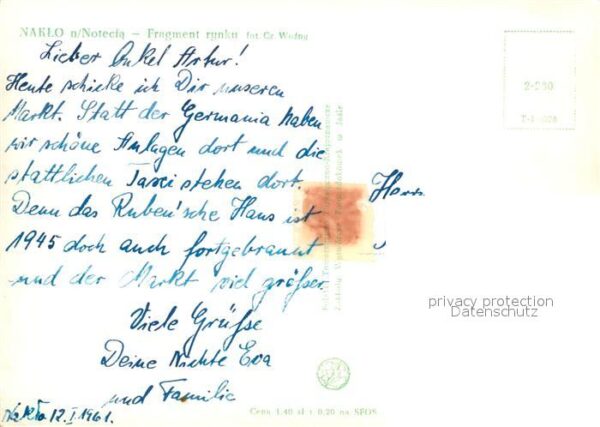 NAKŁO n/Notecią – Fragment rynku fot. Cz. Woźny
Lieber Onkel Artur!
Heute schicke ich Dir unseren
Markt. Statt der Germania haben
wir schöne Anlagen dort und die
stattlichen Taxi stehen dort.
Denn das Ruben'sche Haus ist
1945 doch auch fortgebrannt
und der Markt viel größer
Viele Grüße
Deine Nichte Eva
und Familie
Nakło 12.I.1961.
Herrn
2-230
privacy protection
Datenschutz
Cena 1,40 zł + 0,20 na SFOS